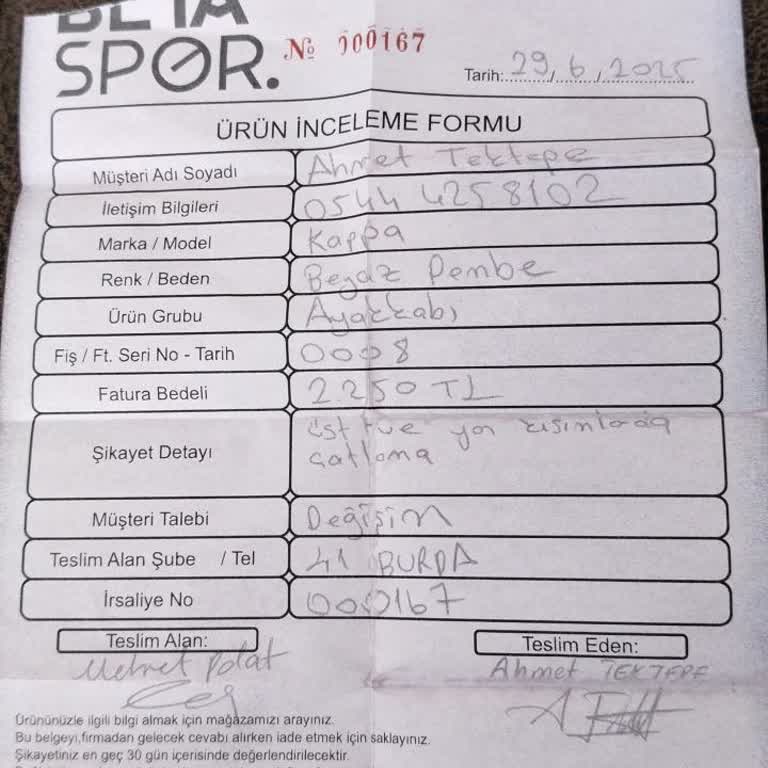 BETA
SPOR.
№ 000167
Tarih: 29,6,2025
ÜRÜN İNCELEME FORMU
Müşteri Adı Soyadı Ahmet Tektepe
İletişim Bilgileri 0544 4258102
Marka / Model Kappa
Renk / Beden Beyaz Pembe
Ürün Grubu Ayakkabı
Fiş / Ft. Seri No - Tarih 0008
Fatura Bedeli 2.250 TL
Şikayet Detayı üst ve yan kısımlarda
çatlama
Müşteri Talebi Değişim
Teslim Alan Şube / Tel 41 BURDA
İrsaliye No 000167
Teslim Alan: Teslim Eden:
Mehmet Polat Ahmet TEKTEPE
Ürününüzle ilgili bilgi almak için mağazamızı arayınız.
Bu belgeyi,firmadan gelecek cevabı alırken iade etmek için saklayınız.
Şikayetiniz en geç 30 gün içerisinde değerlendirilecektir.